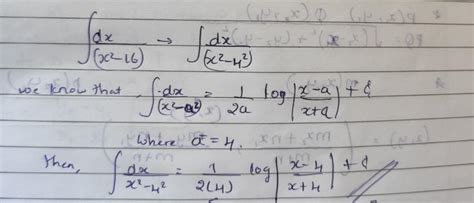 ∫ dx/(x²-16) → ∫ dx/(x²-4²)
we know that, ∫ dx/(x²-a²) = 1/2a log |x-a/x+a| + C
where a = 4.
Then, ∫ dx/x²-4² = 1/2(4) log |x-4/x+4| + C